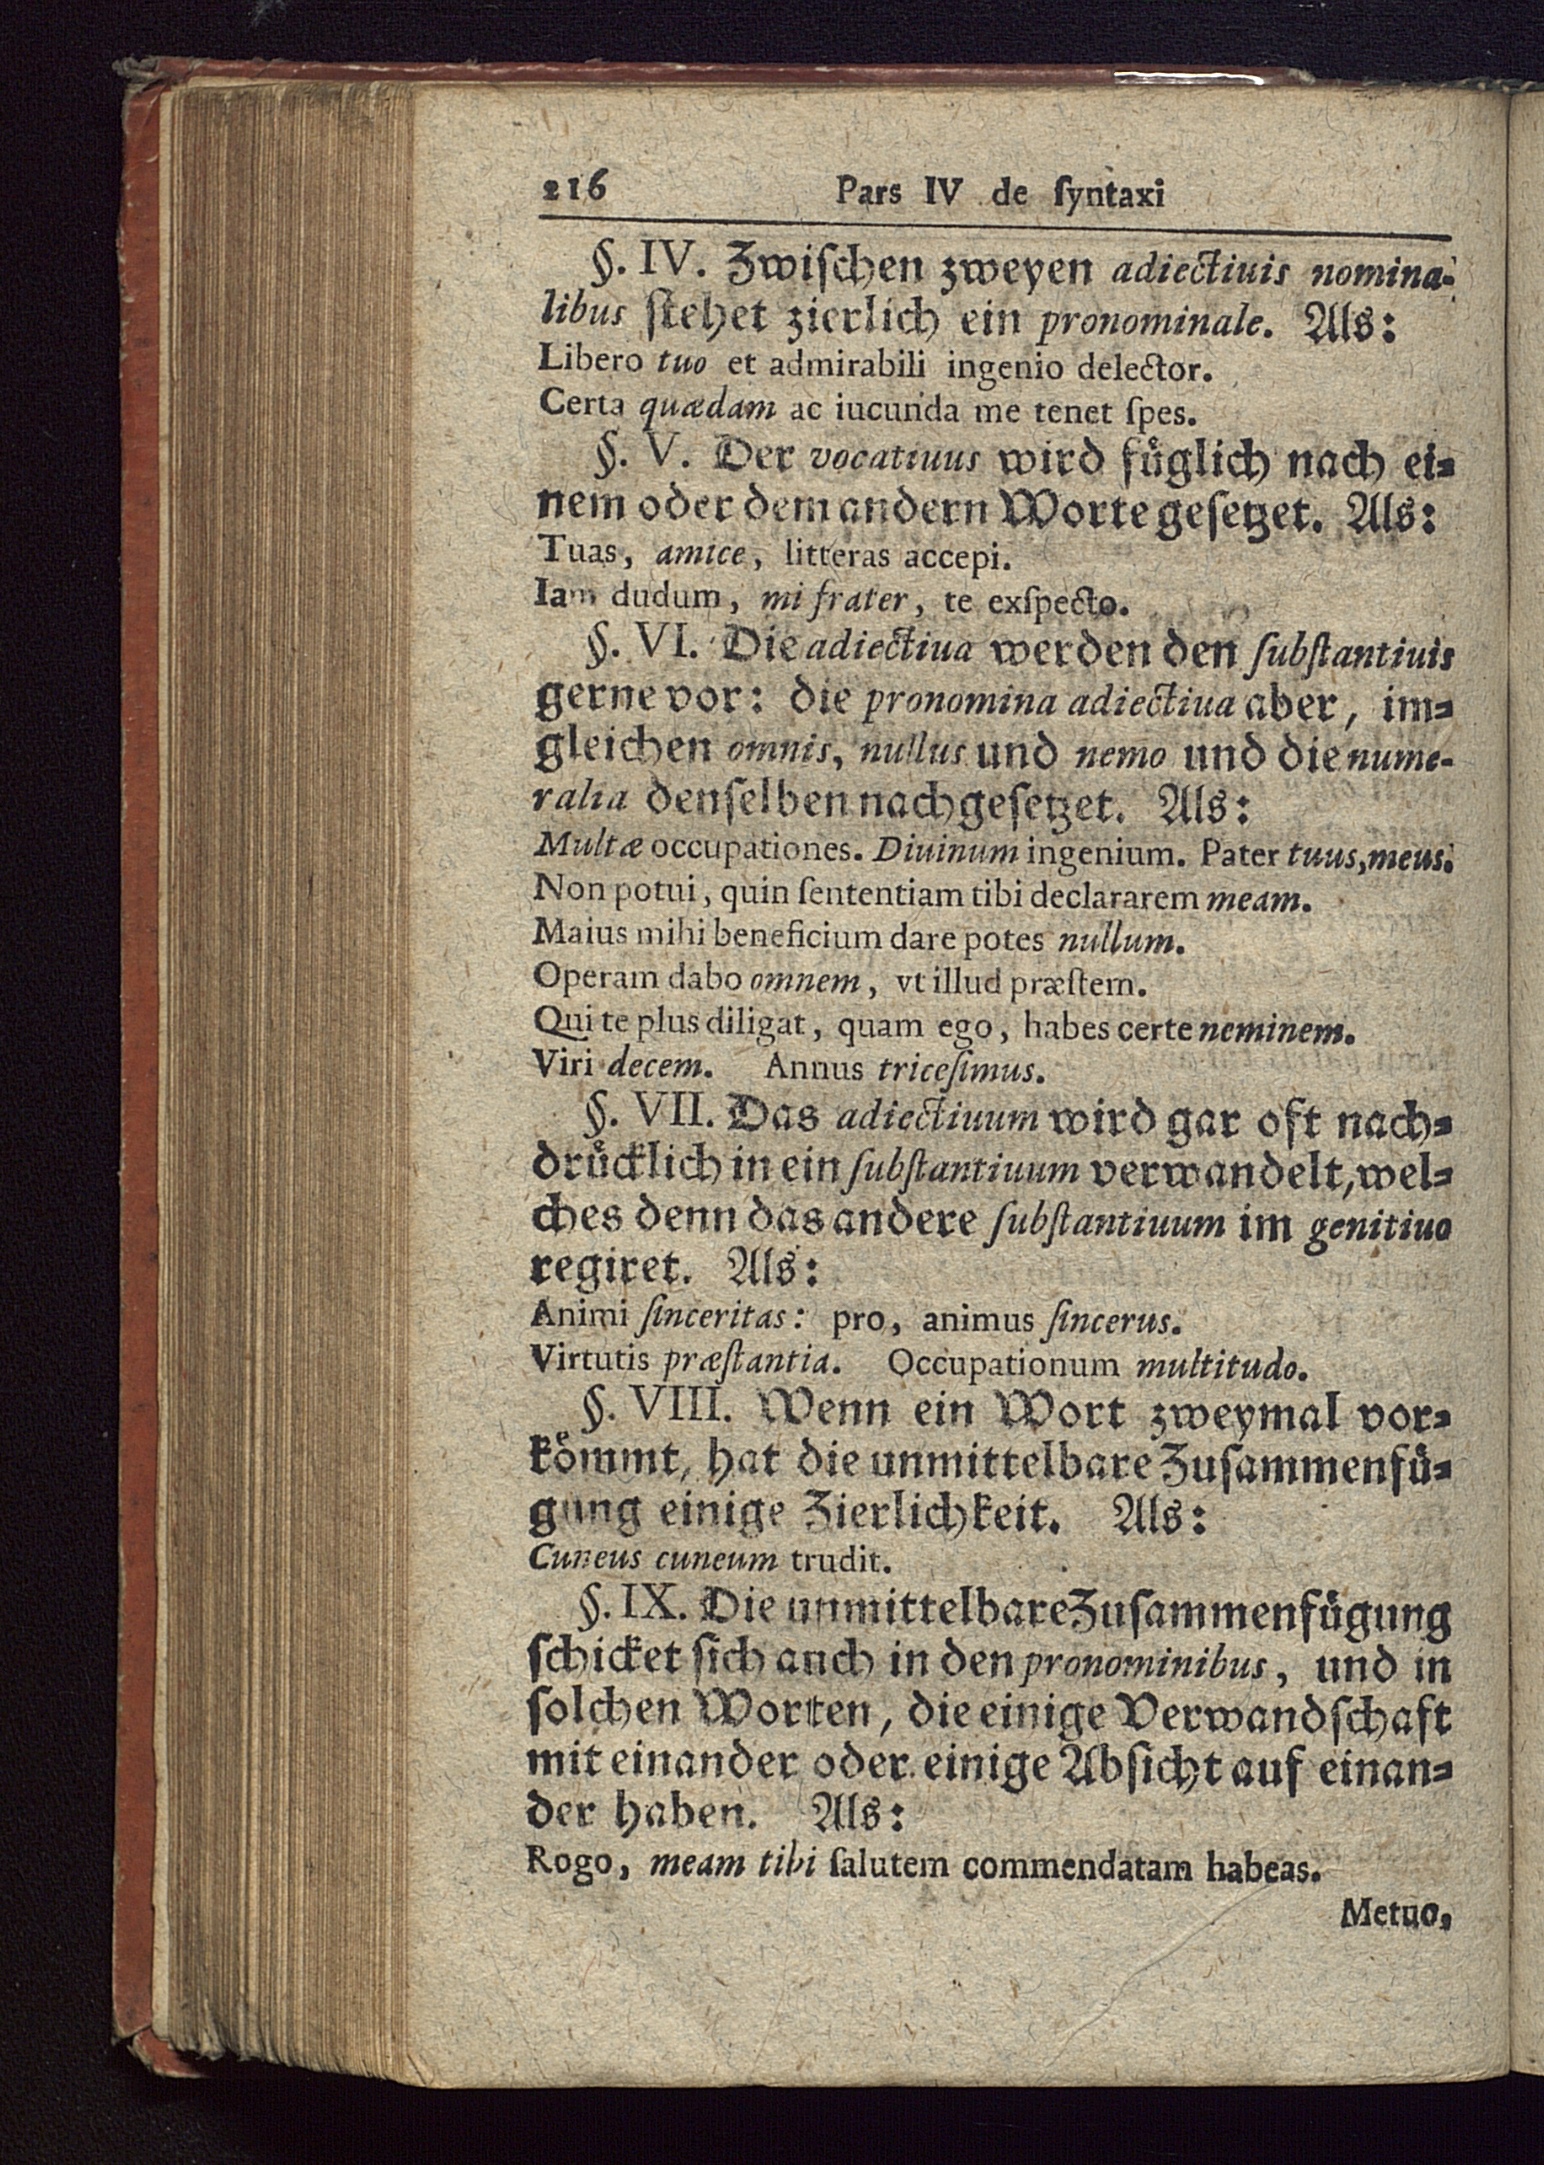 216 Pars IV de ſyntaxi
§. IV. Zwiſchen zweyen adiectiuis nomina-
libus ſtehet zierlich ein pronominale. Als:
Libero tuo et admirabili ingenio delector.
Certa quædam ac iucunda me tenet ſpes.
§. V. Der vocatiuus wird fuͤglich nach ei-
nem oder dem andern Worte geſetzet. Als:
Tuas, amice, litteras accepi.
Iam dudum, mi frater, te exſpecto.
§. VI. Die adiectiua werden den ſubſtantiuis
gerne vor: die pronomina adiectiua aber, im-
gleichen omnis, nullus und nemo und die nume-
ralia denſelben nachgeſetzet. Als:
Multæ occupationes. Diuinum ingenium. Pater tuus, meus.
Non potui, quin ſententiam tibi declararem meam.
Maius mihi beneficium dare potes nullum.
Operam dabo omnem, vt illud præſtem.
Qui te plus diligat, quam ego, habes certe neminem.
Viri decem. Annus triceſimus.
§. VII. Das adiectiuum wird gar oft nach-
druͤcklich in ein ſubſtantiuum verwandelt, wel-
ches denn das andere ſubſtantiuum im genitiuo
regiret. Als:
Animi ſinceritas: pro, animus ſincerus.
Virtutis præſtantia. Occupationum multitudo.
§. VIII. Wenn ein Wort zweymal vor-
koͤmmt, hat die unmittelbare Zuſammenfuͤ-
gung einige Zierlichkeit. Als:
Cuneus cuneum trudit.
§. IX. Die unmittelbare Zuſammenfuͤgung
ſchicket ſich auch in den pronominibus, und in
ſolchen Worten, die einige Verwandſchaft
mit einander oder einige Abſicht auf einan-
der haben. Als:
Rogo, meam tibi ſalutem commendatam habeas.
Metuo,